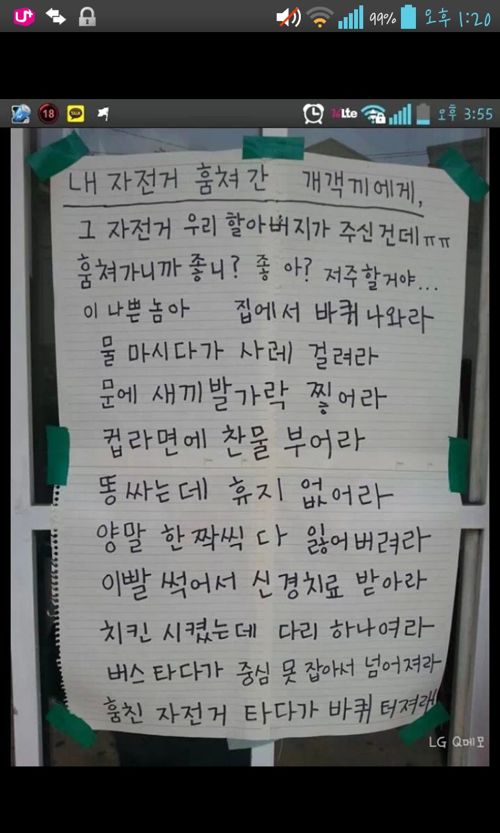 U+
99% 오후 1:20
18 TALK LTE 오후 3:55
내 자전거 훔쳐간 개객끼에게,
그 자전거 우리 할아버지가 주신건데ㅠㅠ
훔쳐가니까 좋니? 좋아? 저주할거야...
이 나쁜놈아 집에서 바퀴 나와라
물 마시다가 사레 걸려라
문에 새끼발가락 찧어라
컵라면에 찬물 부어라
똥싸는데 휴지 없어라
양말 한짝씩 다 잃어버려라
이빨 썩어서 신경치료 받아라
치킨 시켰는데 다리 하나여라
버스타다가 중심 못 잡아서 넘어져라
훔친 자전거 타다가 바퀴 터져라
LG Q메모